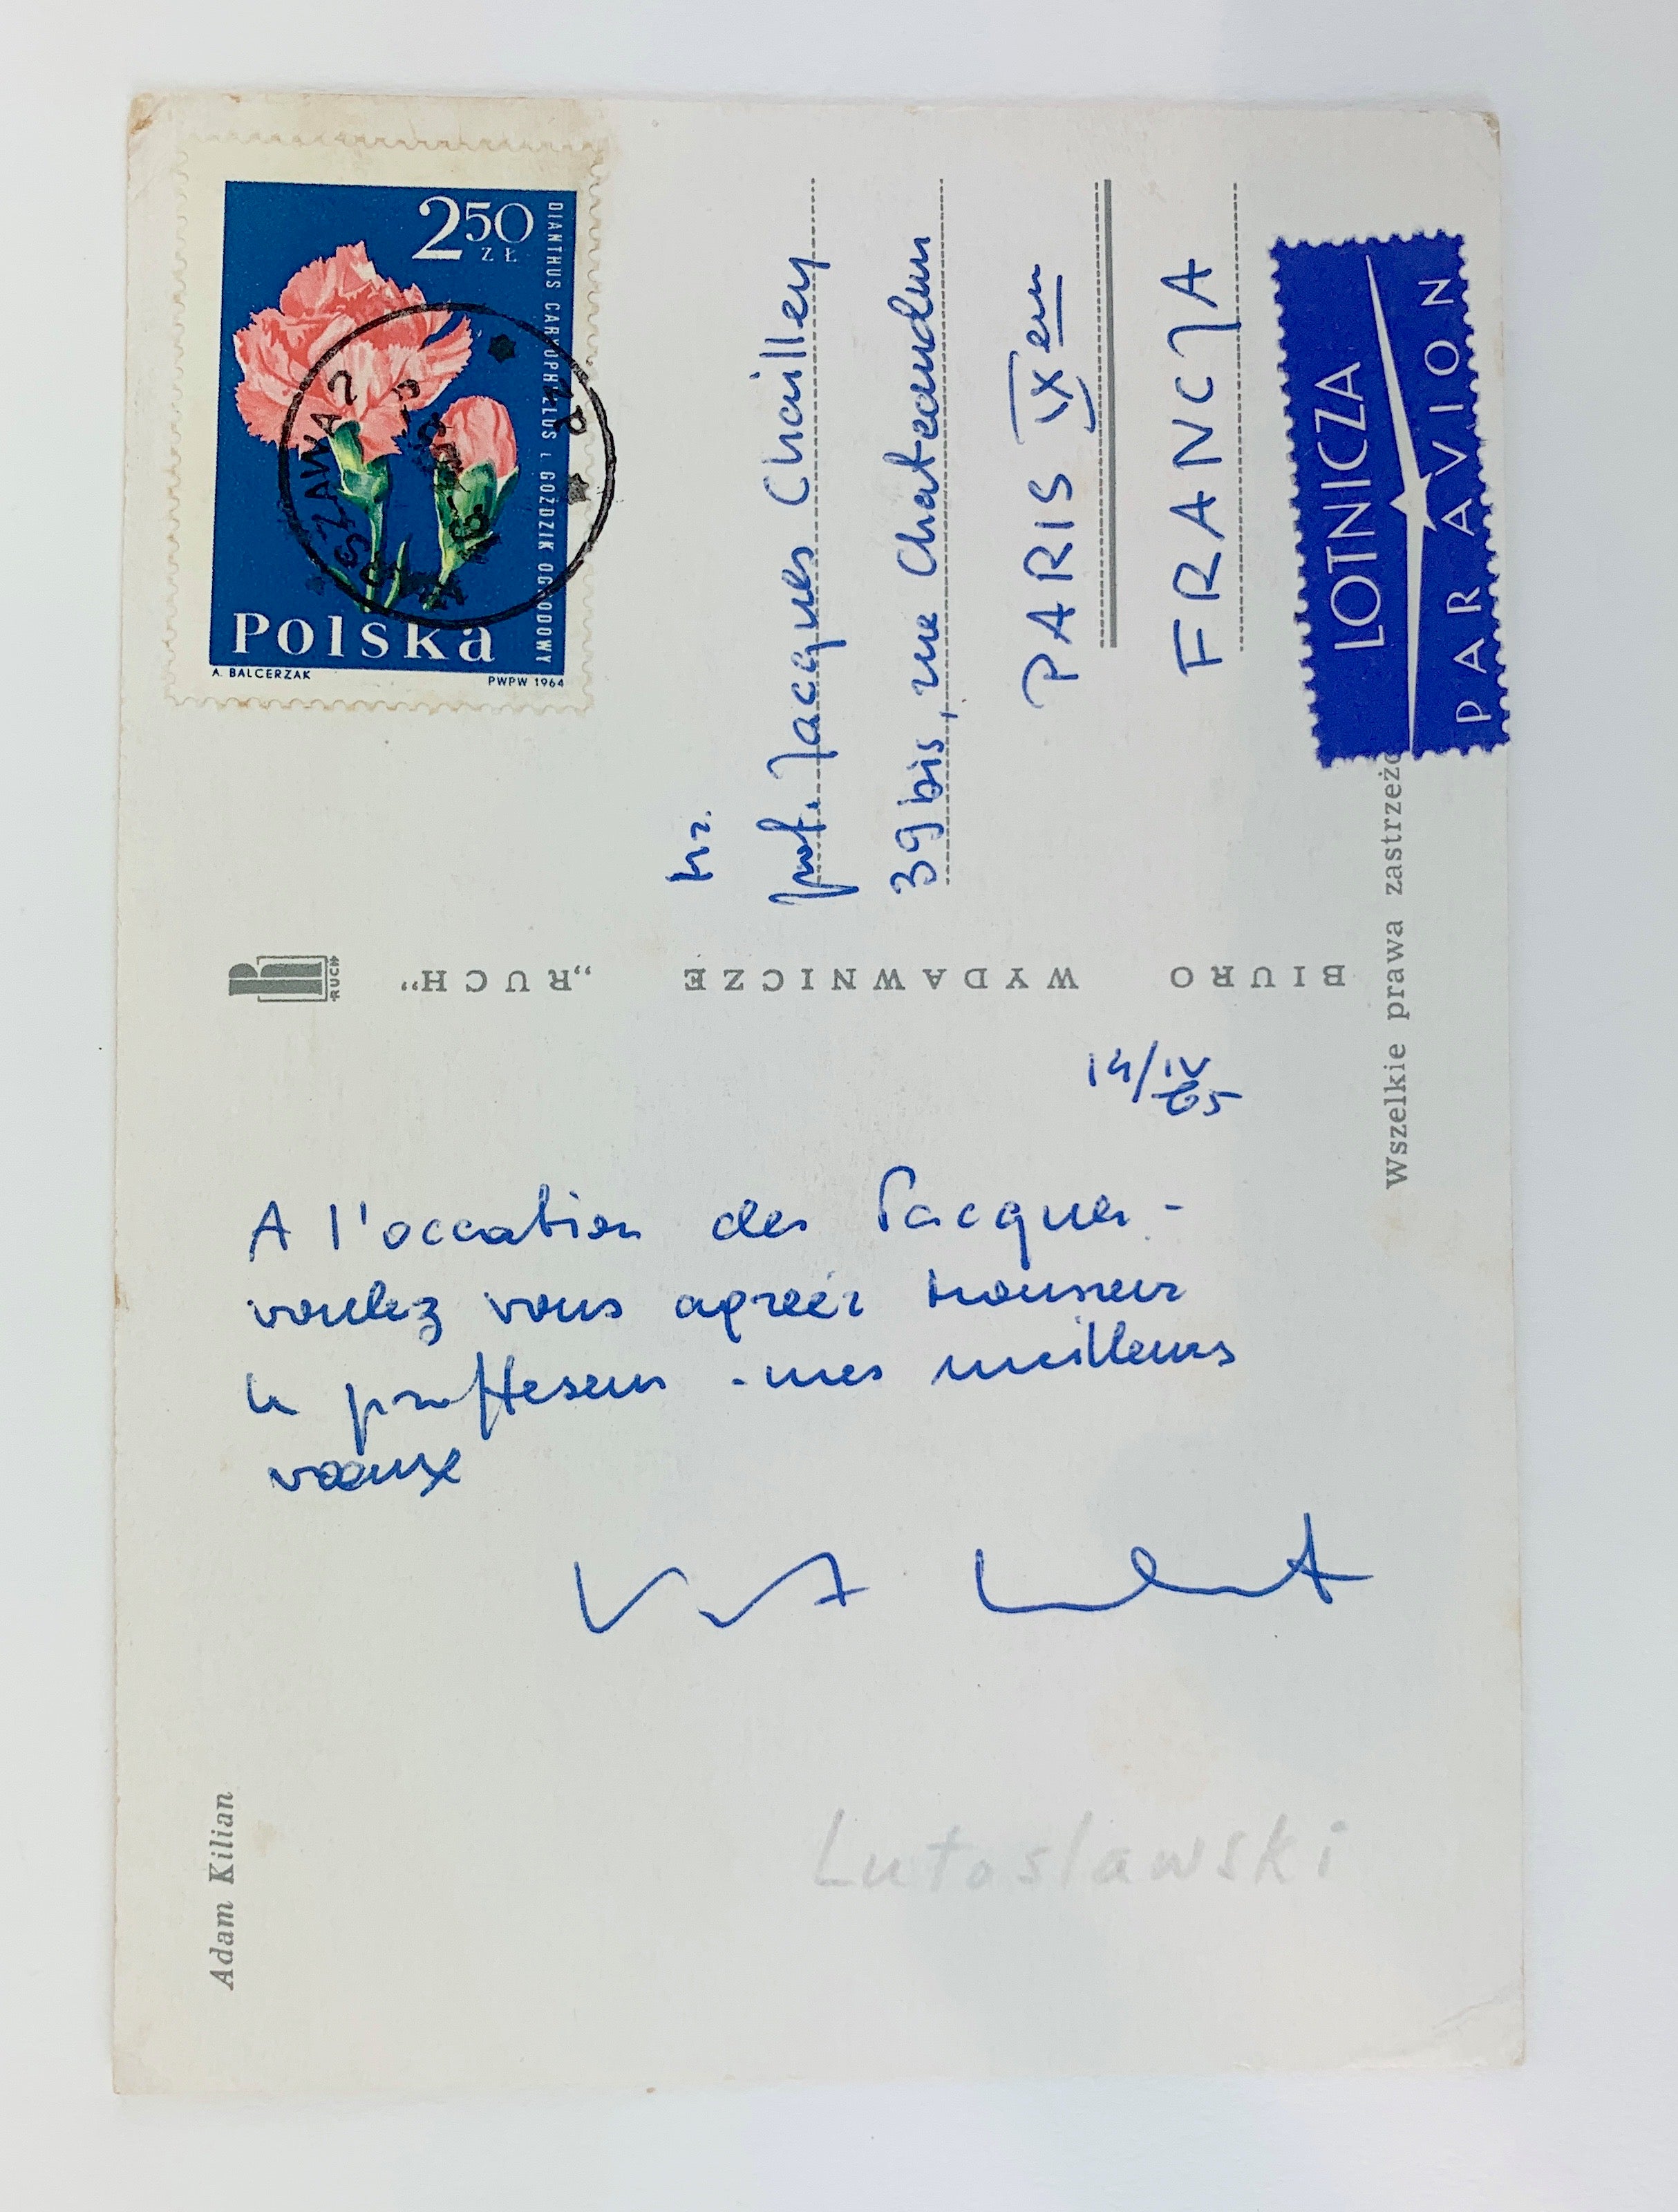 2 50
ZŁ
DIANTHUS CARYOPHYLLUS L. GOŹDZIK OGRODOWY
Polska
A. BALCERZAK
PWPW 1964
WARSZAWA 2
prof. Jacques Chailley
39 bis, rue Chateaudun
PARIS IX em
FRANCJA
LOTNICZA
PAR AVION
RUCH
BIURO WYDAWNICZE „RUCH"
Wszelkie prawa zastrzeżo
14/IV 65
A l'occation des Pacques -
voulez vous agreér monsieur
le proffeseur - mes meilleurs
voeux
Lutoslawski
Adam Kilian